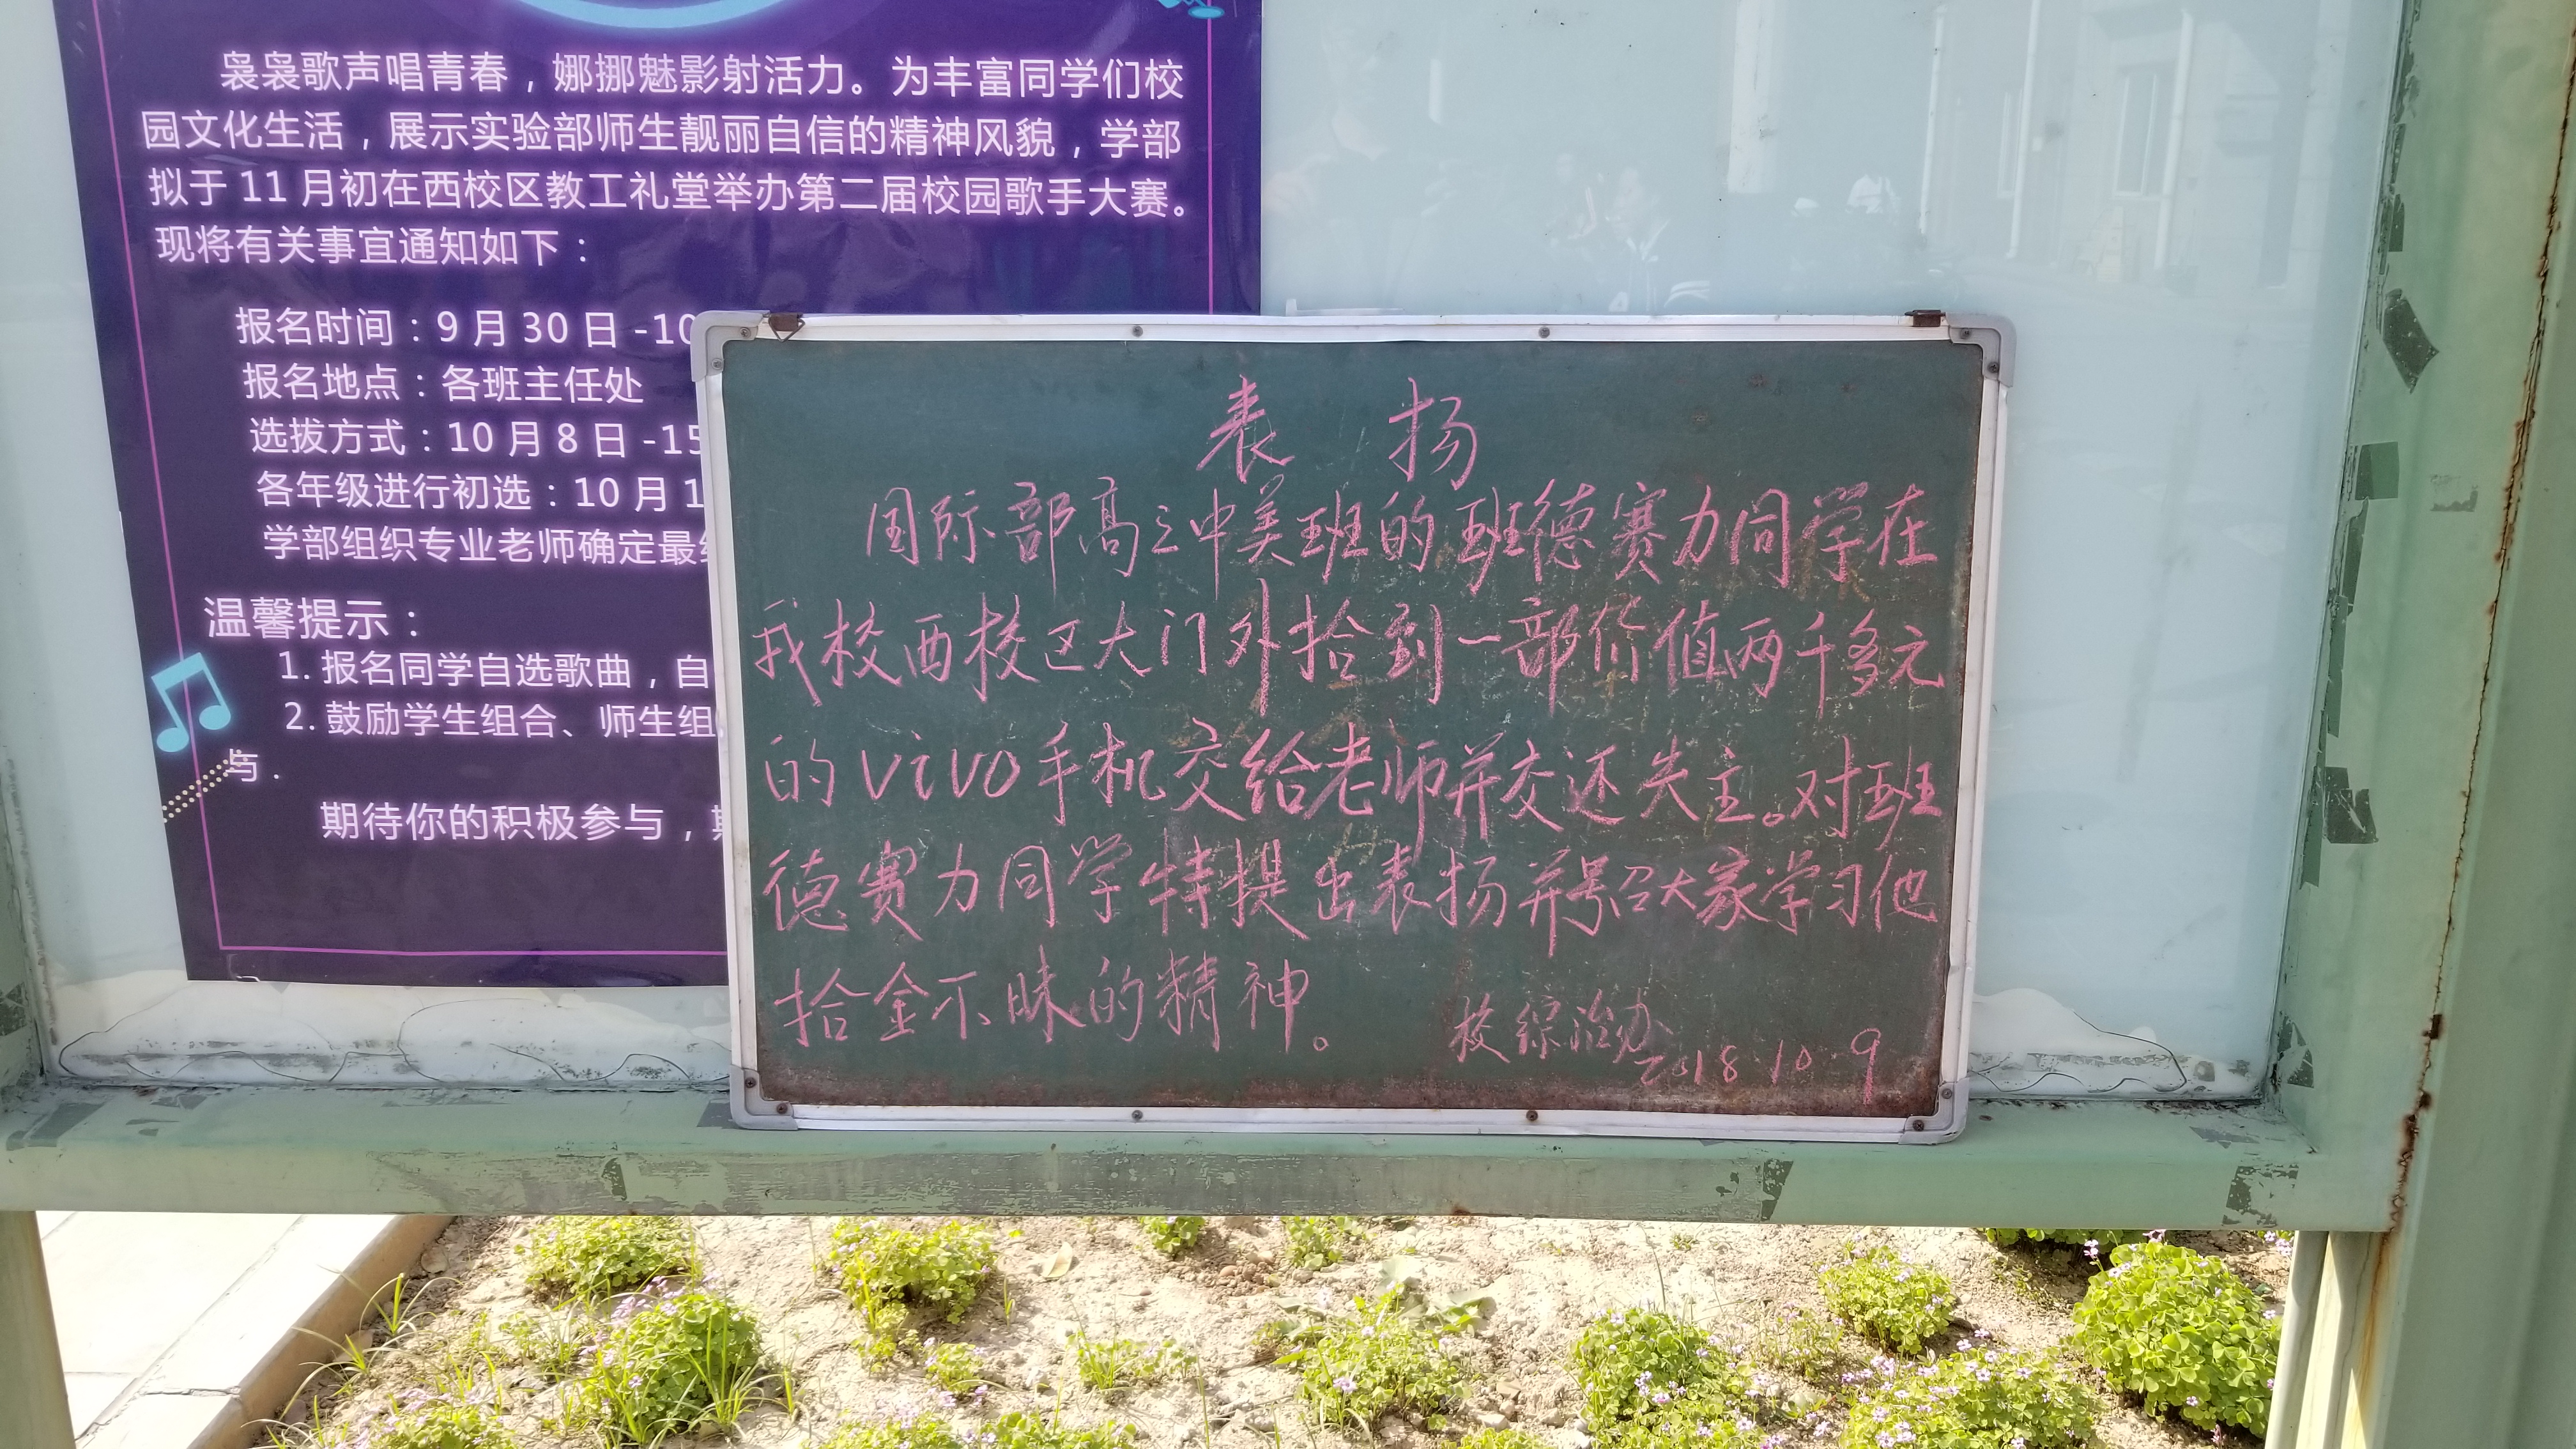 袅袅歌声唱青春，娜挪魅影射活力。为丰富同学们校
园文化生活，展示实验部师生靓丽自信的精神风貌，学部
拟于 11 月初在西校区教工礼堂举办第二届校园歌手大赛。
现将有关事宜通知如下：
报名时间：9 月 30 日 -10
报名地点：各班主任处
选拔方式：10 月 8 日 -15
各年级进行初选：10 月 1
学部组织专业老师确定最
温馨提示：
1. 报名同学自选歌曲，自
2. 鼓励学生组合、师生组
与 .
期待你的积极参与，
表 扬
国际部高三中美班的班德赛力同学在
我校西校区大门外拾到一部价值两千多元
的vivo手机交给老师并交还失主。对班
德赛力同学特提出表扬并号召大家学习他
拾金不昧的精神。
校综治办
2018.10.9